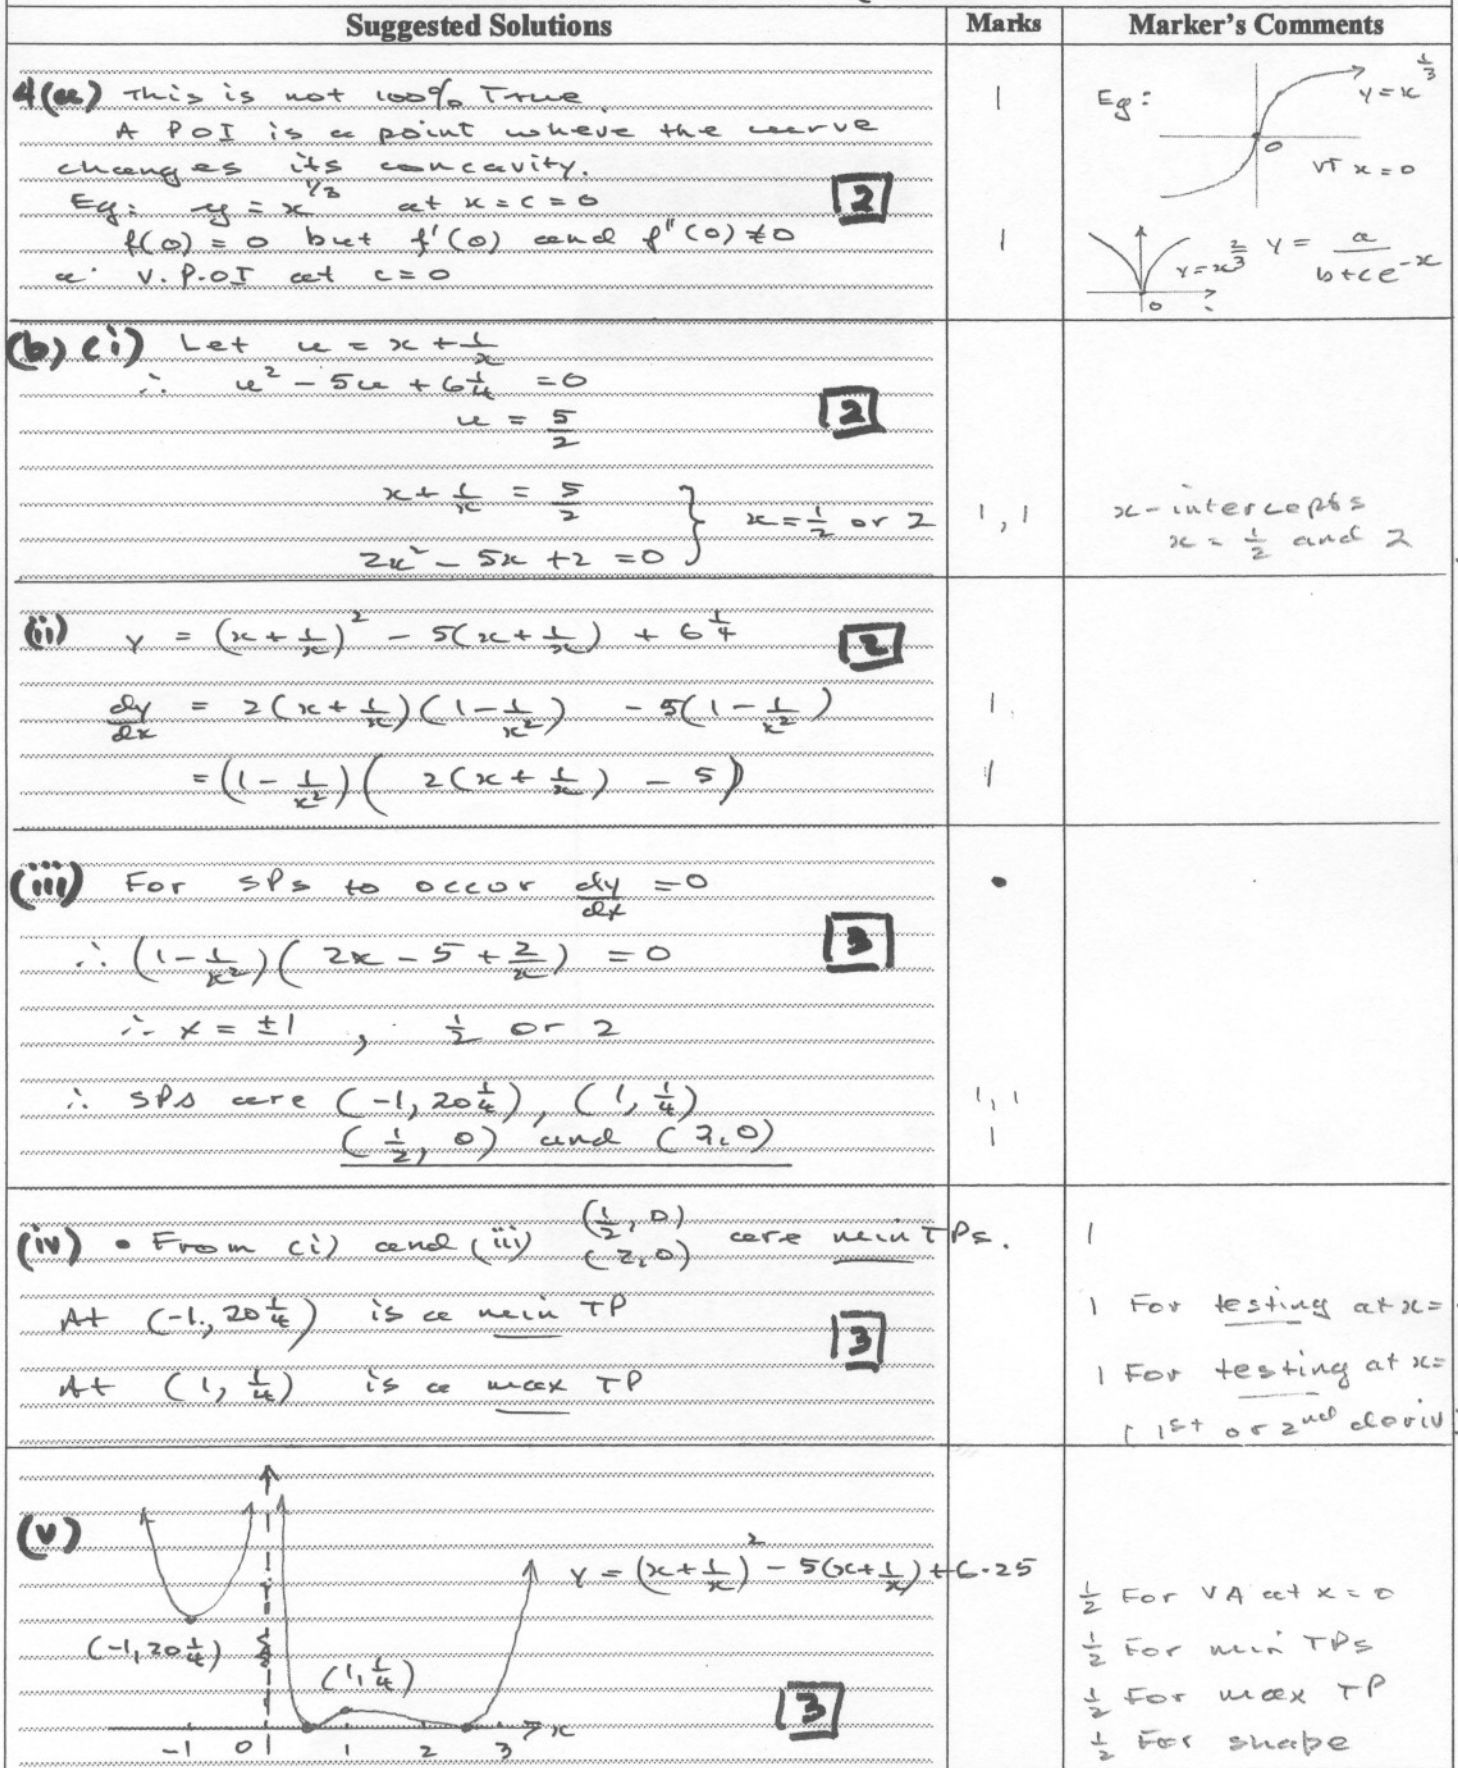 Suggested Solutions
Marks
Marker's Comments
4(a) This is not 100% True.
A POI is a point where the curve
changes its concavity.
Eg: y = x^1/3 at x = c = 0
f(0) = 0 but f'(0) and f''(0) ≠ 0
a V.P.OI at c = 0
2
1
1
Eg:
y = x^1/3
0
VT x = 0
y = x^2/3
y = a/(b + ce^-x)
0
(b) (i) Let u = x + 1/x
∴ u² - 5u + 6 1/4 = 0
u = 5/2
2
x + 1/x = 5/2
2x² - 5x + 2 = 0 } x = 1/2 or 2
1, 1
x-intercepts
x = 1/2 and 2
(ii) y = (x + 1/x)² - 5(x + 1/x) + 6 1/4
2
dy/dx = 2(x + 1/x)(1 - 1/x²) - 5(1 - 1/x²)
1
= (1 - 1/x²)(2(x + 1/x) - 5)
1
(iii) For SPs to occur dy/dx = 0
3
∴ (1 - 1/x²)(2x - 5 + 2/x) = 0
∴ x = ±1, 1/2 or 2
∴ SPs are (-1, 20 1/4), (1, 1/4)
(1/2, 0) and (2, 0)
1, 1
1
(iv) • From (i) and (iii) (1/2, 0) (2, 0) are min TPs.
1
At (-1, 20 1/4) is a min TP
3
1 For testing at x=
At (1, 1/4) is a max TP
1 For testing at x=
( 1st or 2nd deriv
(v)
y = (x + 1/x)² - 5(x + 1/x) + 6.25
(-1, 20 1/4)
(1, 1/4)
3
x
-1 0 1 2 3
1/2 For VA at x = 0
1/2 For min TPs
1/2 For max TP
1/2 For shape